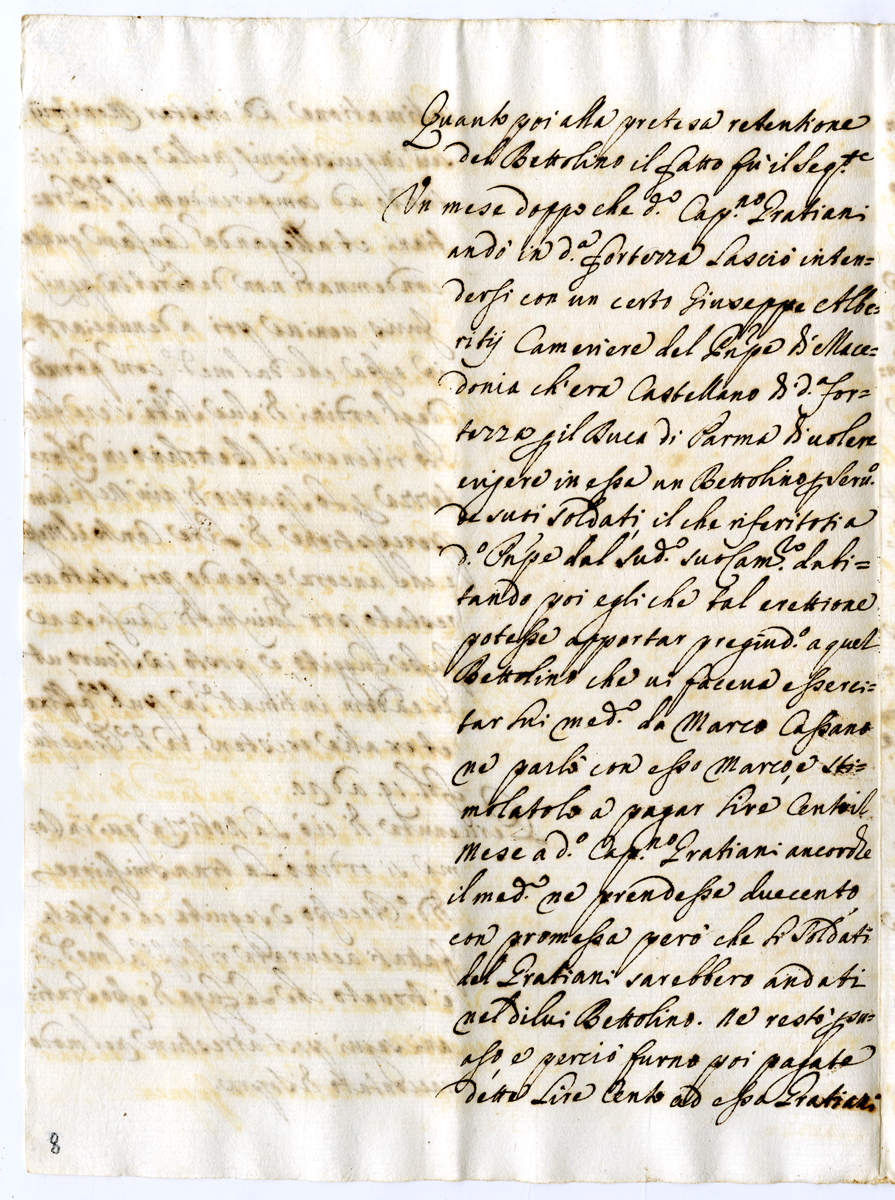 Quanto poi alla pretesa retentione
del Bettolino il fatto fù il seg.te
Un mese doppo che d.o Cap.no Gratiani
andò in d.a fortezza lasciò inten=
dersi con un certo Giuseppe Albe=
ritij Cameriere del Pnpe di Mace=
donia ch'era Castellano di d.a for=
tezza p il Duca di Parma di volere
erigere in essa un Bettolino p seru.o
de suoi soldati, il che riferito a
d.o Pnpe dal sud.o suo Cam.o dubi=
tando poi egli che tal erettione
potesse apportar pregiud.o a quel
Bettolino che ui faceua esserci=
tar lui med.o da Marco Cassano
ne parlò con esso Marco, e sti=
molatolo a pagar lire Cento il
Mese a d.o Cap.no Gratiani ancorche
il med.o ne prendesse duecento,
con promessa però che li Soldati
del Gratiani sarebbero andati
nel di lui Bettolino. ne restò psu=
aso, e perciò furno poi pagate
dette Lire Cento ad esso Gratiani
8